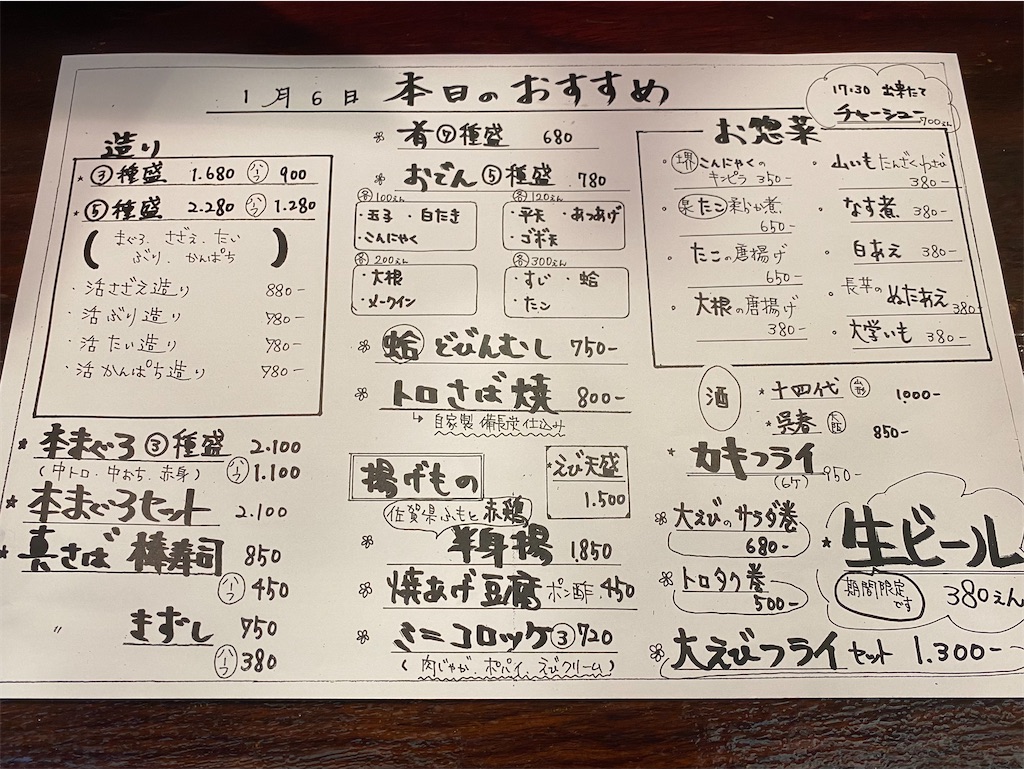 1月6日 本日のおすすめ
17:30 出来たて
チャーシュー
700えん
造り
③種盛 1.680 ハーフ 900
⑤種盛 2.280 ハーフ 1.280
(まぐろ、さざえ、たい
ぶり、かんぱち)
・活さざえ造り 880-
・活ぶり造り 780-
・活たい造り 780-
・活かんぱち造り 780-
本まぐろ③種盛 2.100
(中トロ・中おち・赤身) ハーフ 1.100
本まぐろセット 2.100
真さば棒寿司 850
ハーフ 450
〃 きずし 750
ハーフ 380
肴⑦種盛 680
おでん⑤種盛 780
各100えん
・玉子 ・白たき
・こんにゃく
各120えん
・平天 ・あつあげ
・ゴボ天
各200えん
・大根
・メークイン
各300えん
・すじ ・蛤
・たこ
蛤どびんむし 750-
トロさば焼 800-
↳自家製 備長炭仕込み
揚げもの
えび天盛
1.500
佐賀県ふもと赤鶏
半身揚 1.850
焼あげ豆腐 ポン酢 450
ミニコロッケ③ 720
(肉じゃが、ポパイ、えびクリーム)
お惣菜
・堺こんにゃくの
キンピラ 350-
・泉たこ柔らか煮
650-
・たこの唐揚げ
650-
・大根の唐揚げ
380-
・山いもたんざくわさび
380-
・なす煮 380-
・白あえ 380-
・長芋のぬたあえ
380-
・大学いも 380-
酒
十四代 山形 1.000-
呉春 大阪 850-
カキフライ
(6ケ) 950-
大えびのサラダ巻
680-
トロタク巻
500-
生ビール
期間限定
です
380えん
大えびフライセット 1.300-